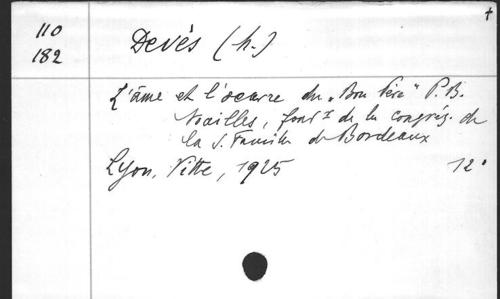 110
182
Devès (h.)
L'âme et l'oeuvre du „Bon Père" P. B.
Noailles, fondr de la congrég. de
la S. Famille de Bordeaux
Lyon, Vitte, 1925 12°